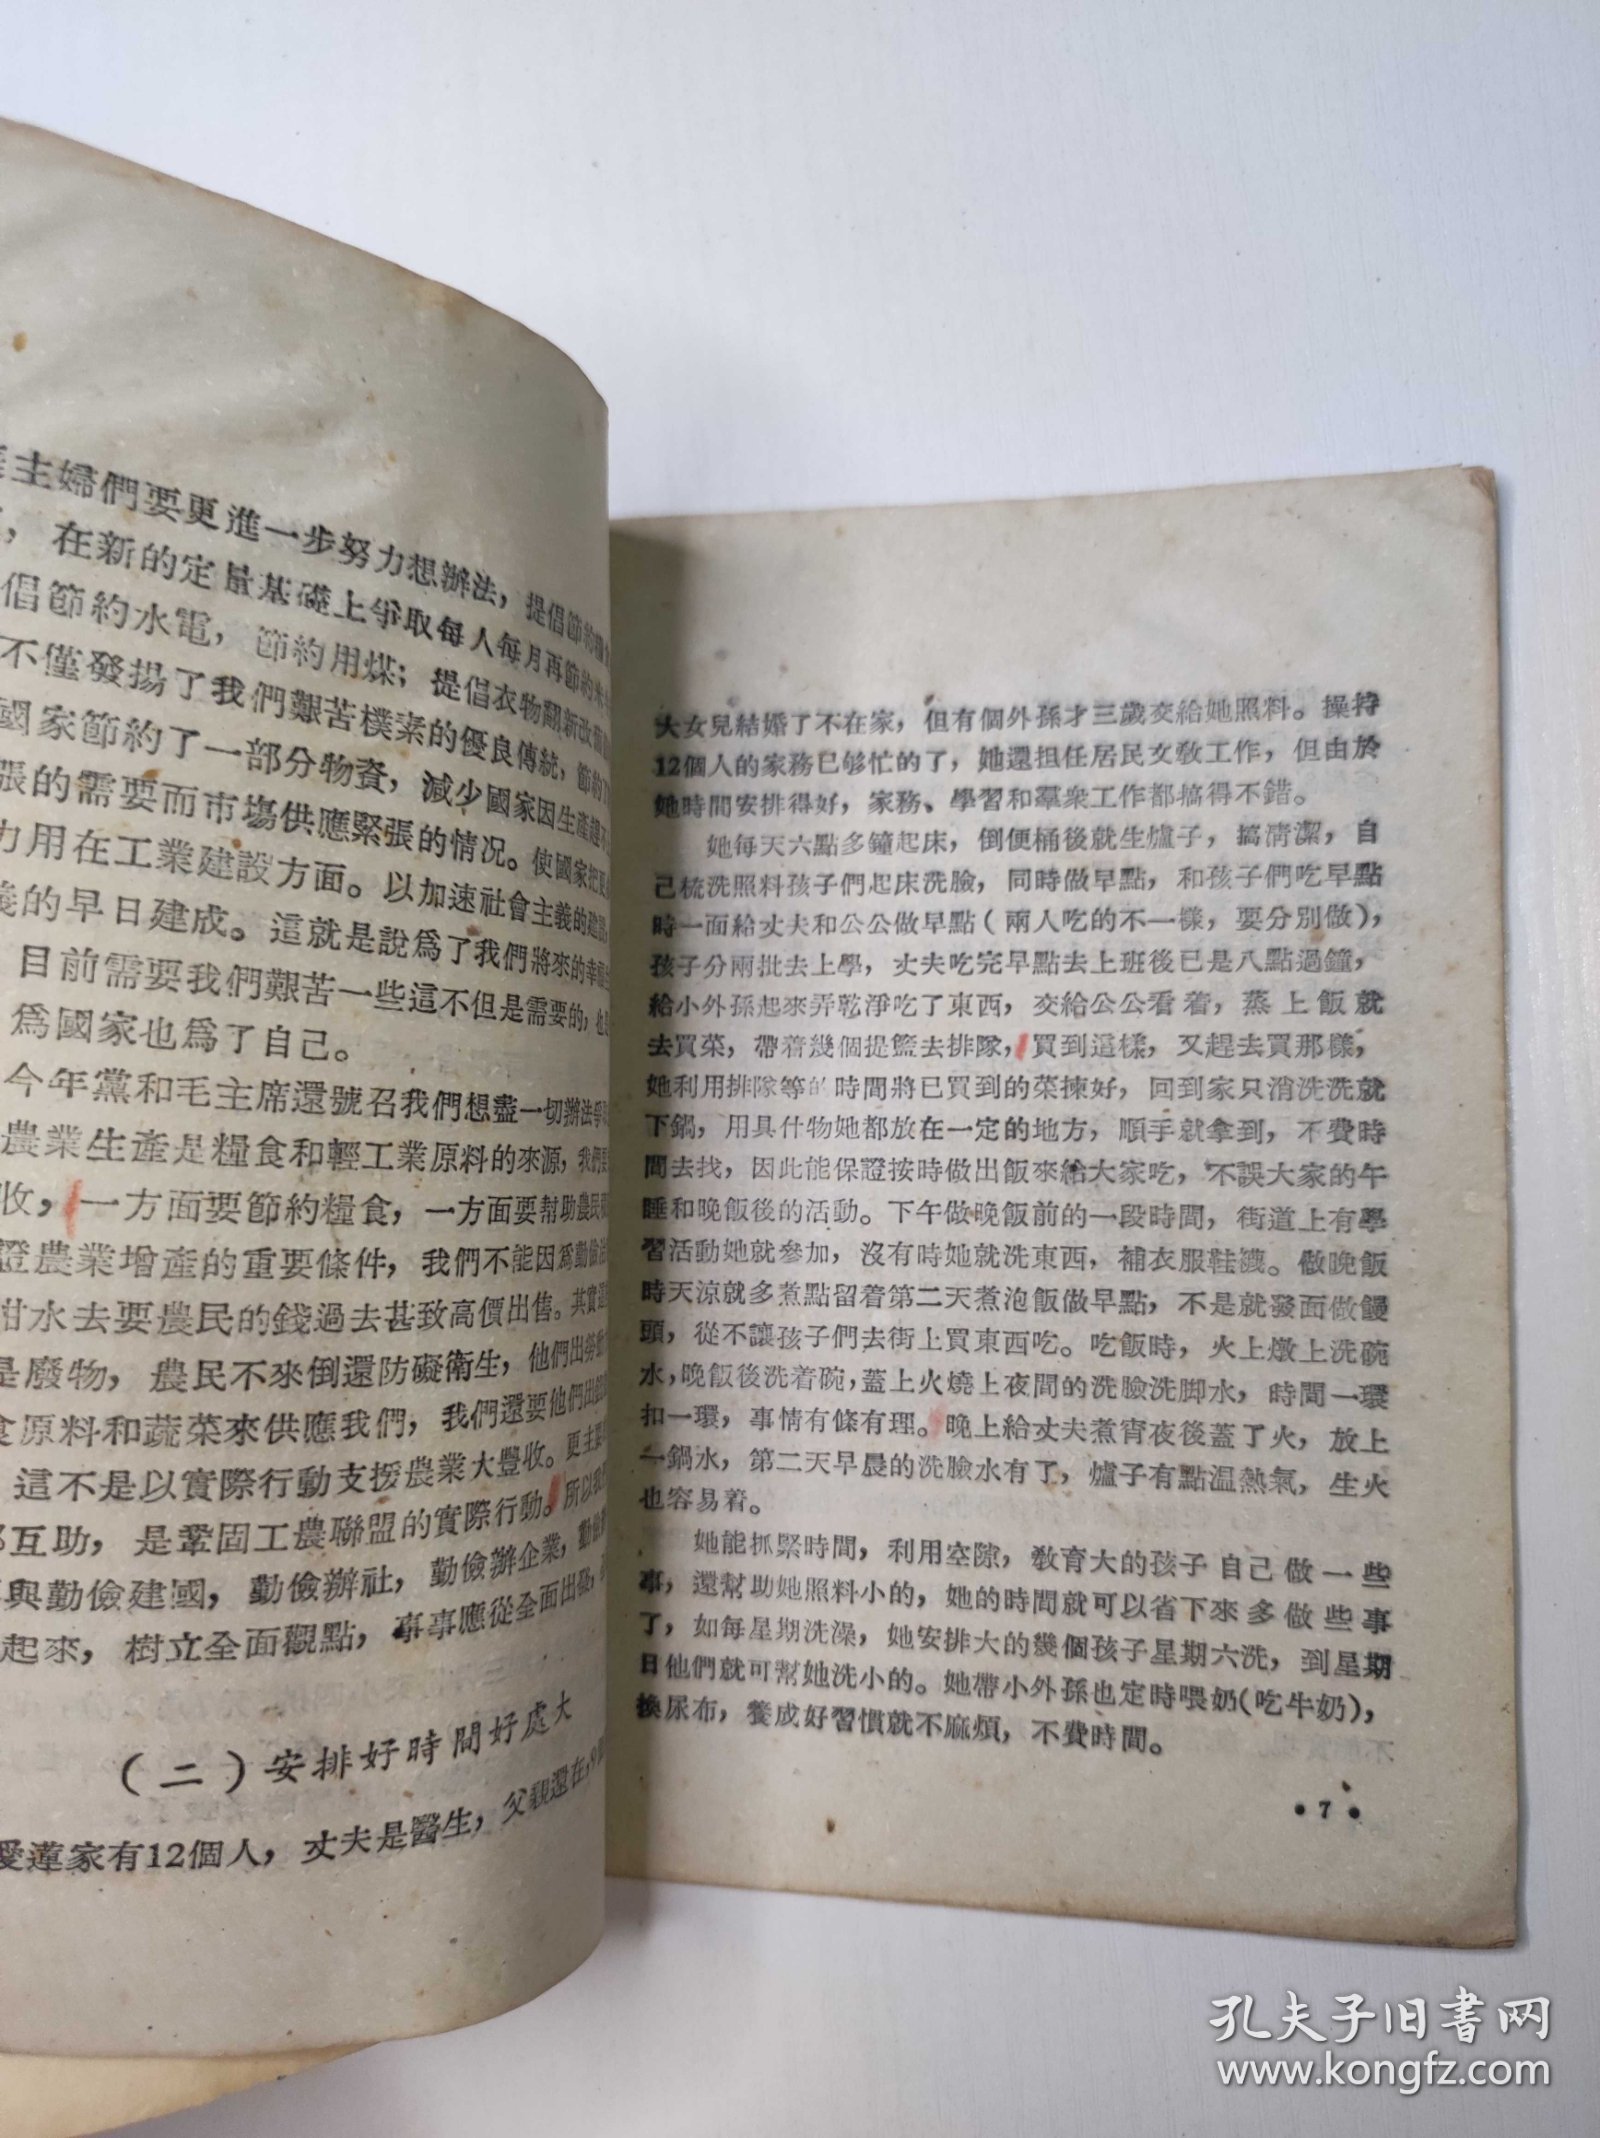 主婦們要更進一步努力想辦法，提倡節約糧
，在新的定量基礎上爭取每人每月再節約米
倡節約水電，節約用煤；提倡衣物翻新改
不僅發揚了我們艱苦樸素的優良傳統，節約了
國家節約了一部分物資，減少國家因生產趕不
張的需要而市場供應緊張的情况。使國家把更
力用在工業建設方面。以加速社會主義的建設，
義的早日建成。這就是說爲了我們將來的幸福
目前需要我們艱苦一些這不但是需要的，也
爲國家也爲了自己。
今年黨和毛主席還號召我們想盡一切辦法爭取
農業生產是糧食和輕工業原料的來源，我們要
收，一方面要節約糧食，一方面要幫助農民
證農業增產的重要條件，我們不能因爲勤儉
泔水去要農民的錢過去甚致高價出售。其實這
是廢物，農民不來倒還防礙衛生，他們出勞動
食原料和蔬菜來供應我們，我們還要他們出錢
這不是以實際行動支援農業大豐收。更主要
互助，是鞏固工農聯盟的實際行動。所以我
與勤儉建國，勤儉辦社，勤儉辦企業，勤儉
起來，樹立全面觀點，事事應從全面出發，
（二）安排好時間好處大
愛蓮家有12個人，丈夫是醫生，父親還在，9個
大女兒結婚了不在家，但有個外孫才三歲交給她照料。操持
12個人的家務已够忙的了，她還担任居民文教工作，但由於
她時間安排得好，家務、學習和羣衆工作都搞得不錯。
她每天六點多鐘起床，倒便桶後就生爐子，搞清潔，自
己梳洗照料孩子們起床洗臉，同時做早點，和孩子們吃早點
時一面給丈夫和公公做早點（兩人吃的不一樣，要分別做），
孩子分兩批去上學，丈夫吃完早點去上班後已是八點過鐘，
給小外孫起來弄乾淨吃了東西，交給公公看着，蒸上飯就
去買菜，帶着幾個提籃去排隊，買到這樣，又趕去買那樣，
她利用排隊等的時間將已買到的菜揀好，回到家只消洗洗就
下鍋，用具什物她都放在一定的地方，順手就拿到，不費時
間去找，因此能保證按時做出飯來給大家吃，不誤大家的午
睡和晚飯後的活動。下午做晚飯前的一段時間，街道上有學
習活動她就參加，沒有時她就洗東西，補衣服鞋襪。做晚飯
時天凉就多煮點留着第二天煮泡飯做早點，不是就發面做饅
頭，從不讓孩子們去街上買東西吃。吃飯時，火上燉上洗碗
水，晚飯後洗着碗，蓋上火燒上夜間的洗臉洗脚水，時間一環
扣一環，事情有條有理。晚上給丈夫煮宵夜後蓋了火，放上
一鍋水，第二天早晨的洗臉水有了，爐子有點溫熱氣，生火
也容易着。
她能抓緊時間，利用空隙，教育大的孩子自己做一些
事，還幫助她照料小的，她的時間就可以省下來多做些事
了，如每星期洗澡，她安排大的幾個孩子星期六洗，到星期
日他們就可幫她洗小的。她帶小外孫也定時喂奶（吃牛奶），
換尿布，養成好習慣就不麻煩，不費時間。
•7•
孔夫子旧書网
www.kongfz.com